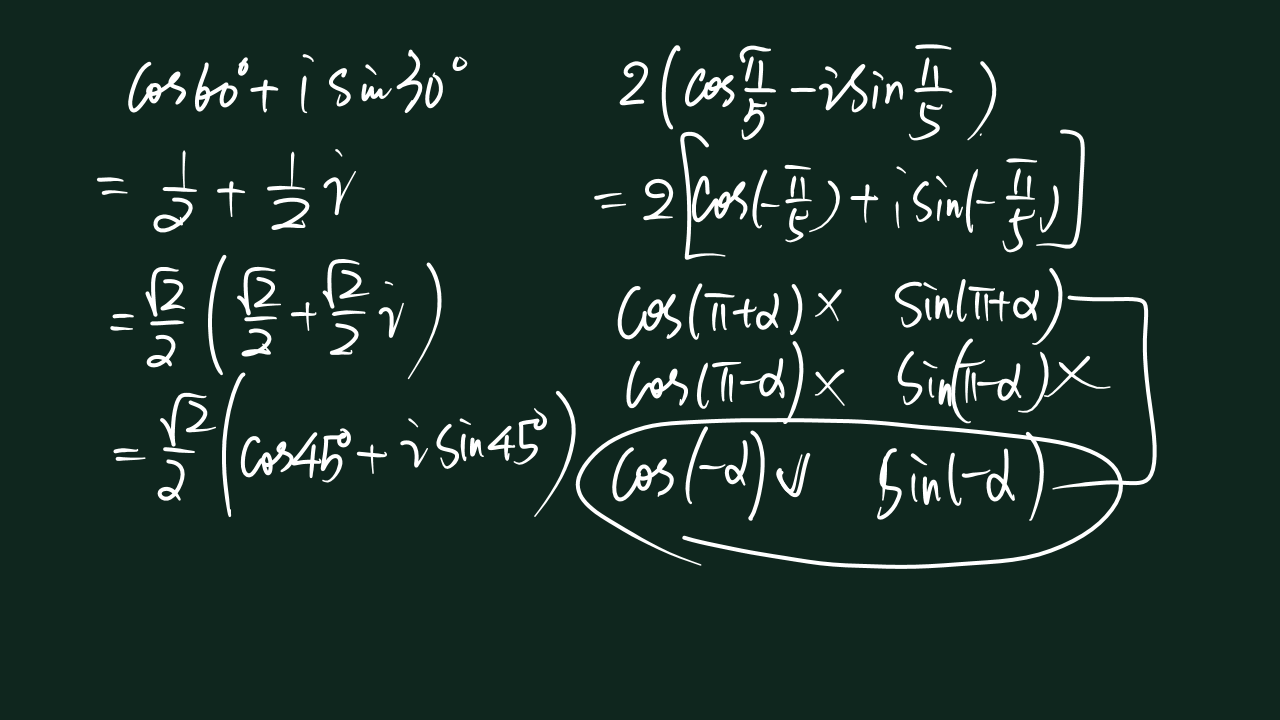 cos60°+ i sin30°
= 1/2 + 1/2 i
= √2/2 ( √2/2 + √2/2 i )
= √2/2 ( cos45° + i sin45° )
2( cos π/5 - i sin π/5 )
= 2[ cos(-π/5) + i sin(-π/5) ]
cos(π+α) × sin(π+α)
cos(π-α) × sin(π-α) ×
cos(-α) ✓ sin(-α)